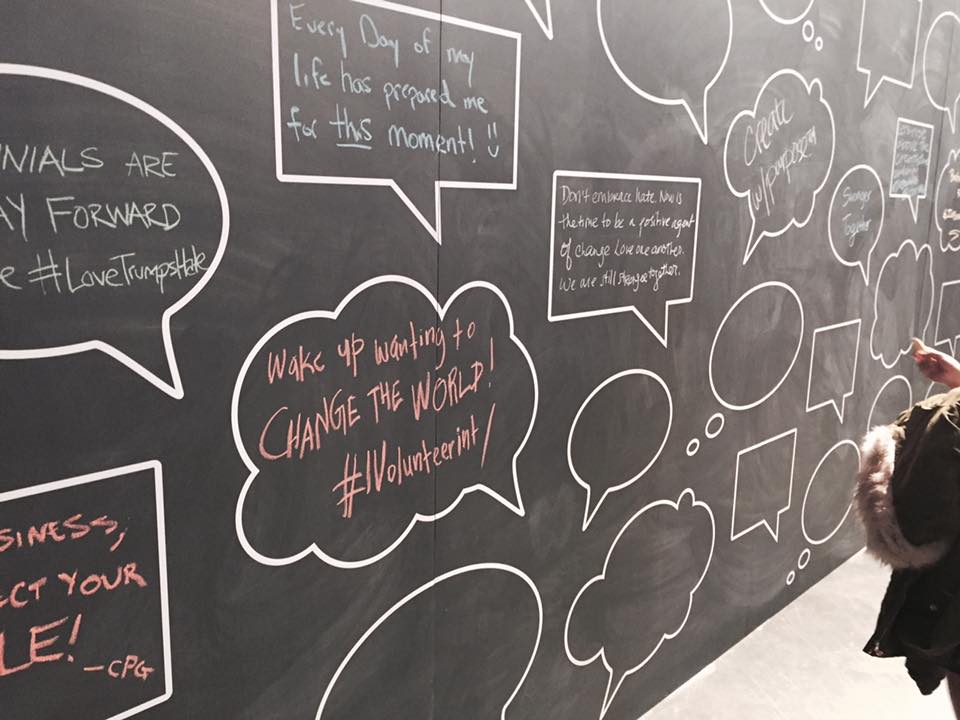 Every Day of my
life has prepared me
for this moment!
NIALS ARE
AY FORWARD
e #LoveTrumpsHate
Don't embrace hate. Now is
the time to be a positive agent
of change Love one another.
We are still stronger together.
Create
w/purpose
Stronger
Together
Wake up wanting to
CHANGE THE WORLD!
#IVolunteerint/
SINESS,
ECT YOUR
LE!
-CPG